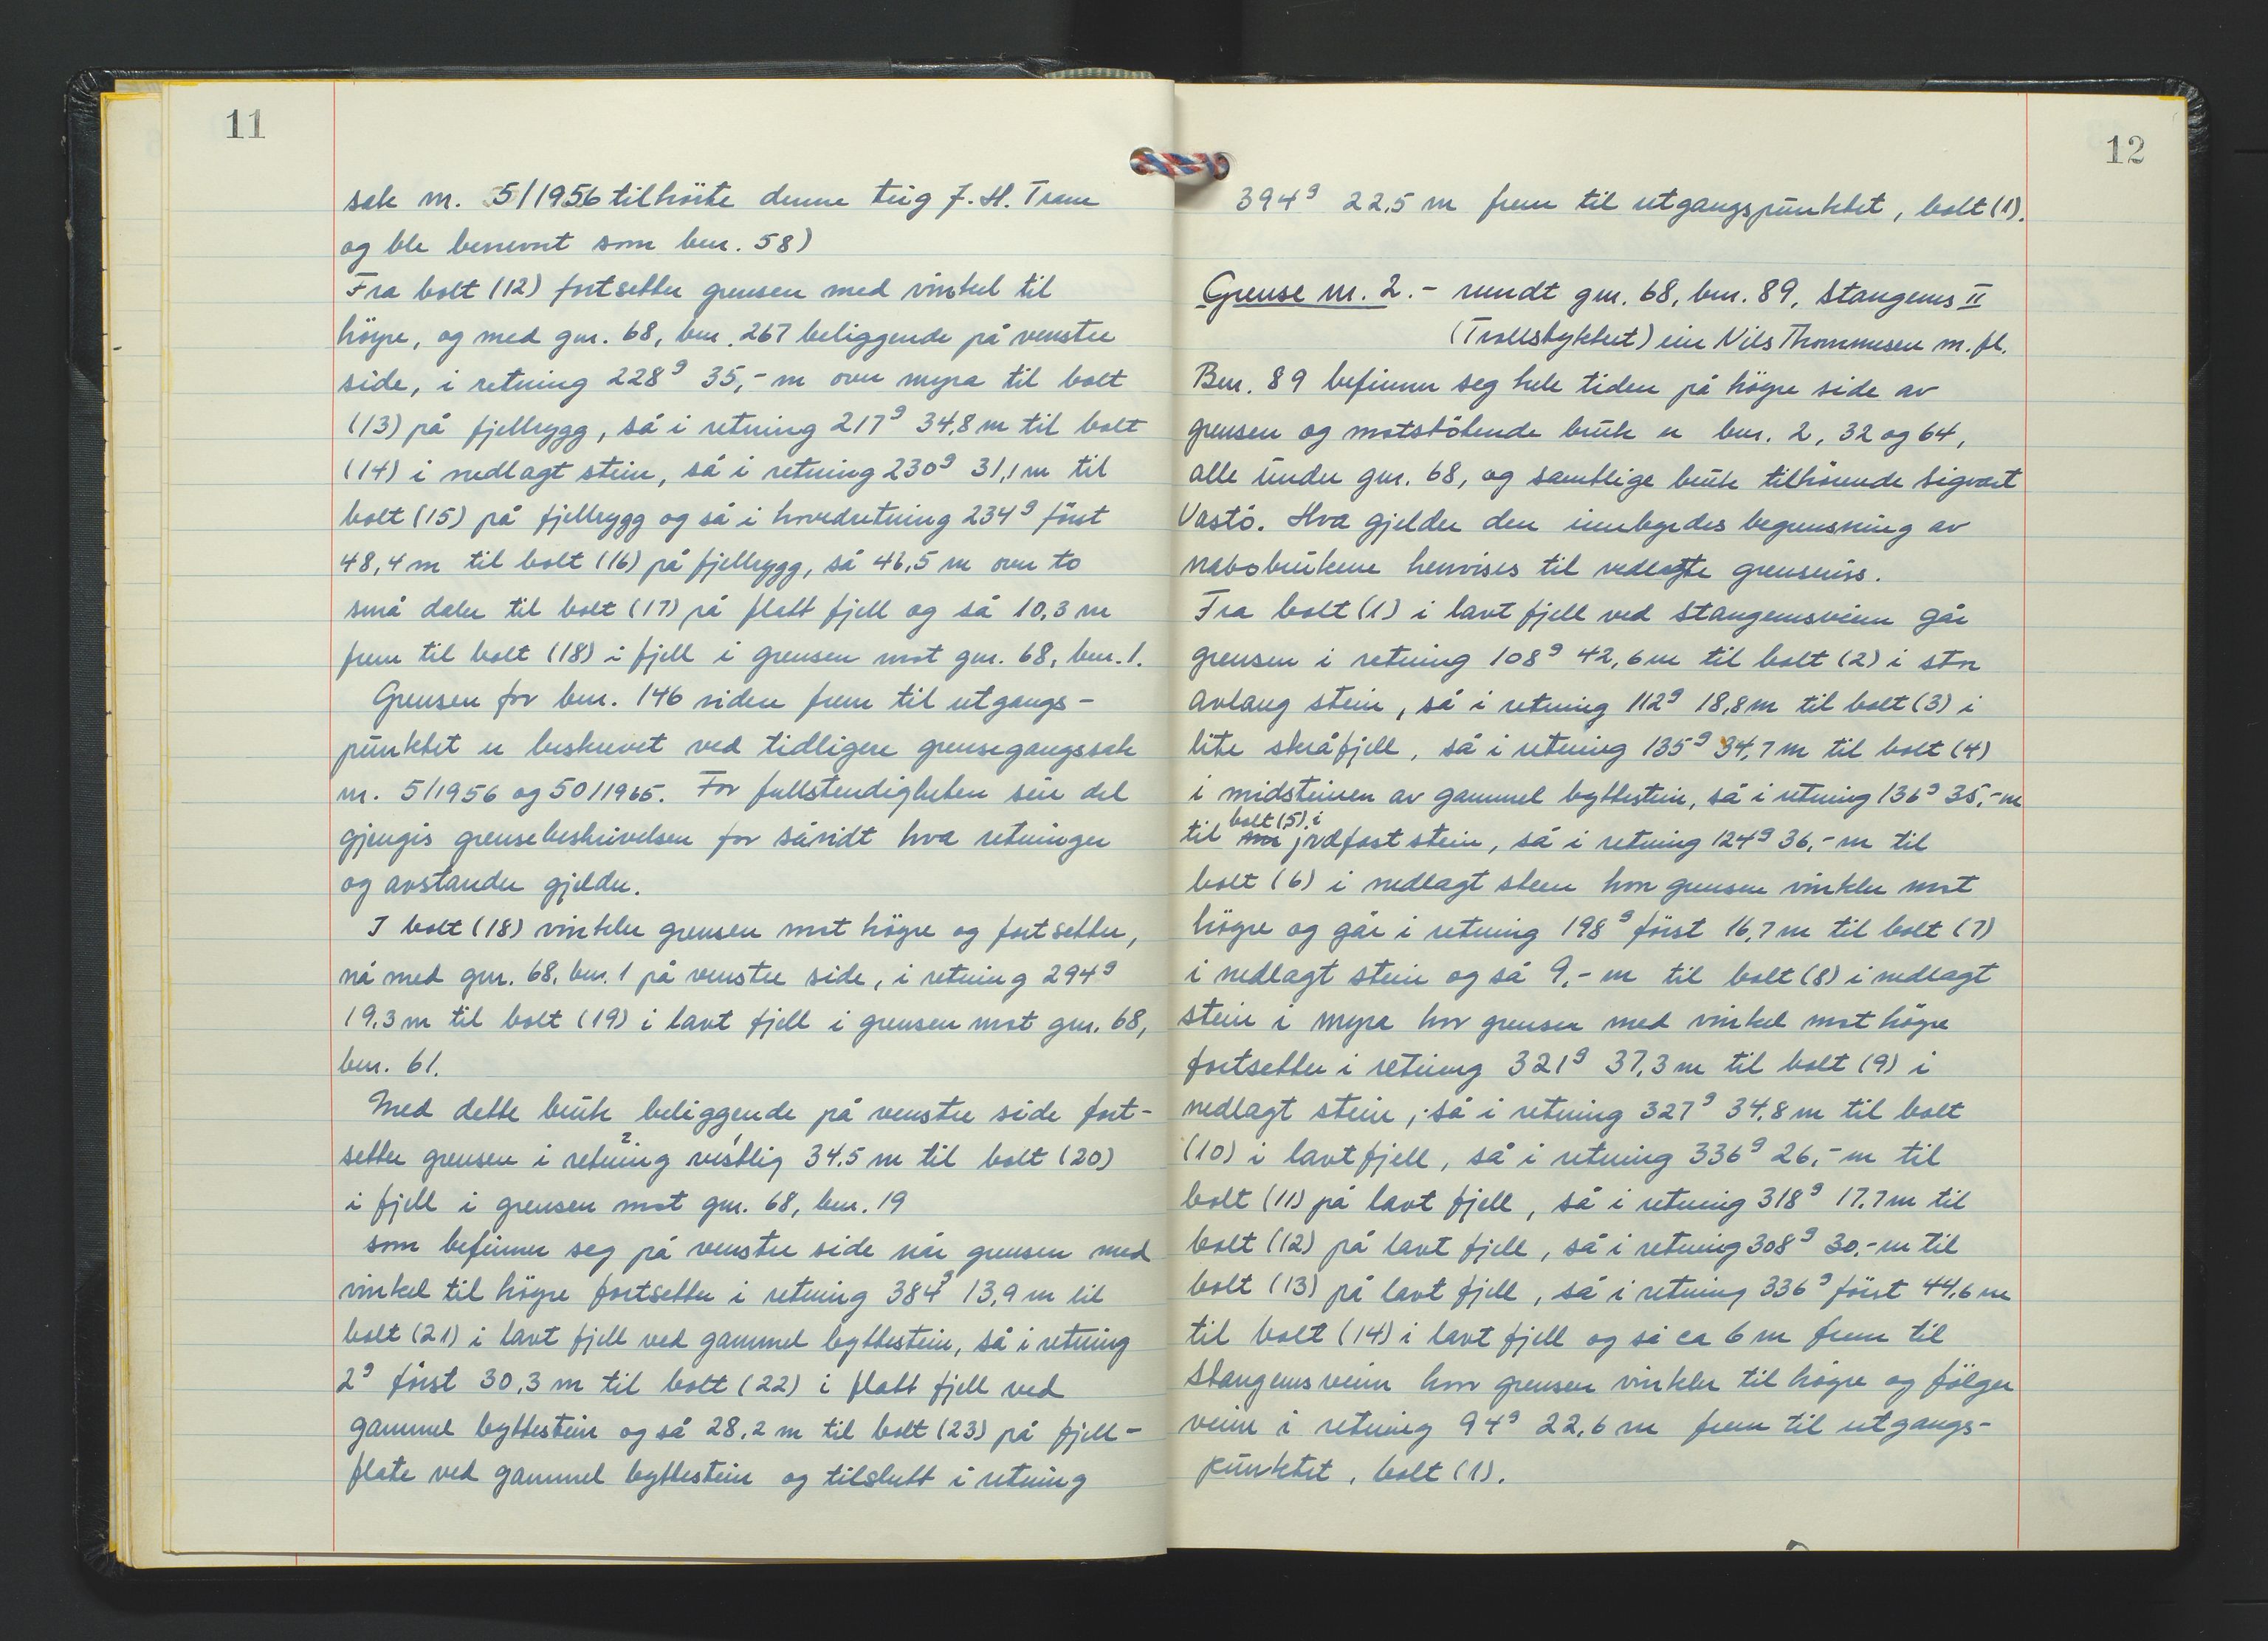 11
sak nr. 5/1956 tilhörte denne teig J. H. Tram
og ble benevnt som bnr. 58)
Fra bolt (12) fortsetter grensen med vinkel til
högre, og med gnr. 68, bnr. 267 beliggende på venstre
side, i retning 228g 35,- m over myra til bolt
(13) på fjellrygg, så i retning 217g 34,8 m til bolt
(14) i nedlagt stein, så i retning 230g 31,1 m til
bolt (15) på fjellrygg og så i hovedretning 234g först
48,4 m til bolt (16) på fjellrygg, så 46,5 m over to
små daler til bolt (17) på flatt fjell og så 10,3 m
frem til bolt (18) i fjell i grensen mot gnr. 68, bnr. 1.
Grensen for bnr. 146 videre frem til utgangs-
punktet er beskrevet ved tidligere grensegangssak
nr. 5/1956 og 50/1965. For fullstendigheten sin del
gjengis grensebeskrivelsen for såvidt hva retninger
og avstander gjelder.
I bolt (18) vinkler grensen mot högre og fortsetter,
nå med gnr. 68, bnr. 1 på venstre side, i retning 294g
19,3 m til bolt (19) i lavt fjell i grensen mot gnr. 68,
bnr. 61.
Med dette bruk beliggende på venstre side fort-
setter grensen i retning vestlig 34,5 m til bolt (20)
i fjell i grensen mot gnr. 68, bnr. 19
som befinner seg på venstre side når grensen med
vinkel til högre fortsetter i retning 384g 13,9 m til
bolt (21) i lavt fjell ved gammel byttestein, så i retning
2g först 30,3 m til bolt (22) i flatt fjell ved
gammel byttestein og så 28,2 m til bolt (23) på fjell-
flate ved gammel byttestein og tilslutt i retning
12
394g 22,5 m frem til utgangspunktet, bolt (1).
Grense nr. 2.- rundt gnr. 68, bnr. 89, Stangenes II
(Trollstykket) eier Nils Thommesen m. fl.
Bnr. 89 befinner seg hele tiden på högre side av
grensen og motstötende bruk er bnr. 2, 32 og 64,
alle under gnr. 68, og samtlige bruk tilhörende Sigvart
Vastö. Hva gjelder den innbyrdes begrensning av
nabobrukene henvises til vedlagte grenseriss.
Fra bolt (1) i lavt fjell ved Stangenesveien går
grensen i retning 108g 42,6 m til bolt (2) i stor
avlang stein, så i retning 112g 18,8 m til bolt (3) i
lite skråfjell, så i retning 135g 34,7 m til bolt (4)
i midsteinen av gammel byttestein, så i retning 136g 35,- m
til bolt (5) i jordfast stein, så i retning 124g 36,- m til
bolt (6) i nedlagt stein hvor grensen vinkler mot
högre og går i retning 198g först 16,7 m til bolt (7)
i nedlagt stein og så 9,- m til bolt (8) i nedlagt
stein i myra hvor grensen med vinkel mot högre
fortsetter i retning 321g 37,3 m til bolt (9) i
nedlagt stein, så i retning 327g 34,8 m til bolt
(10) i lavt fjell, så i retning 336g 26,- m til
bolt (11) på lavt fjell, så i retning 318g 17,7 m til
bolt (12) på lavt fjell, så i retning 308g 30,- m til
bolt (13) på lavt fjell, så i retning 336g först 44,6 m
til bolt (14) i lavt fjell og så ca 6 m frem til
Stangenesveien hvor grensen vinkler til högre og fölger
veien i retning 94g 22,6 m frem til utgangs-
punktet, bolt (1).